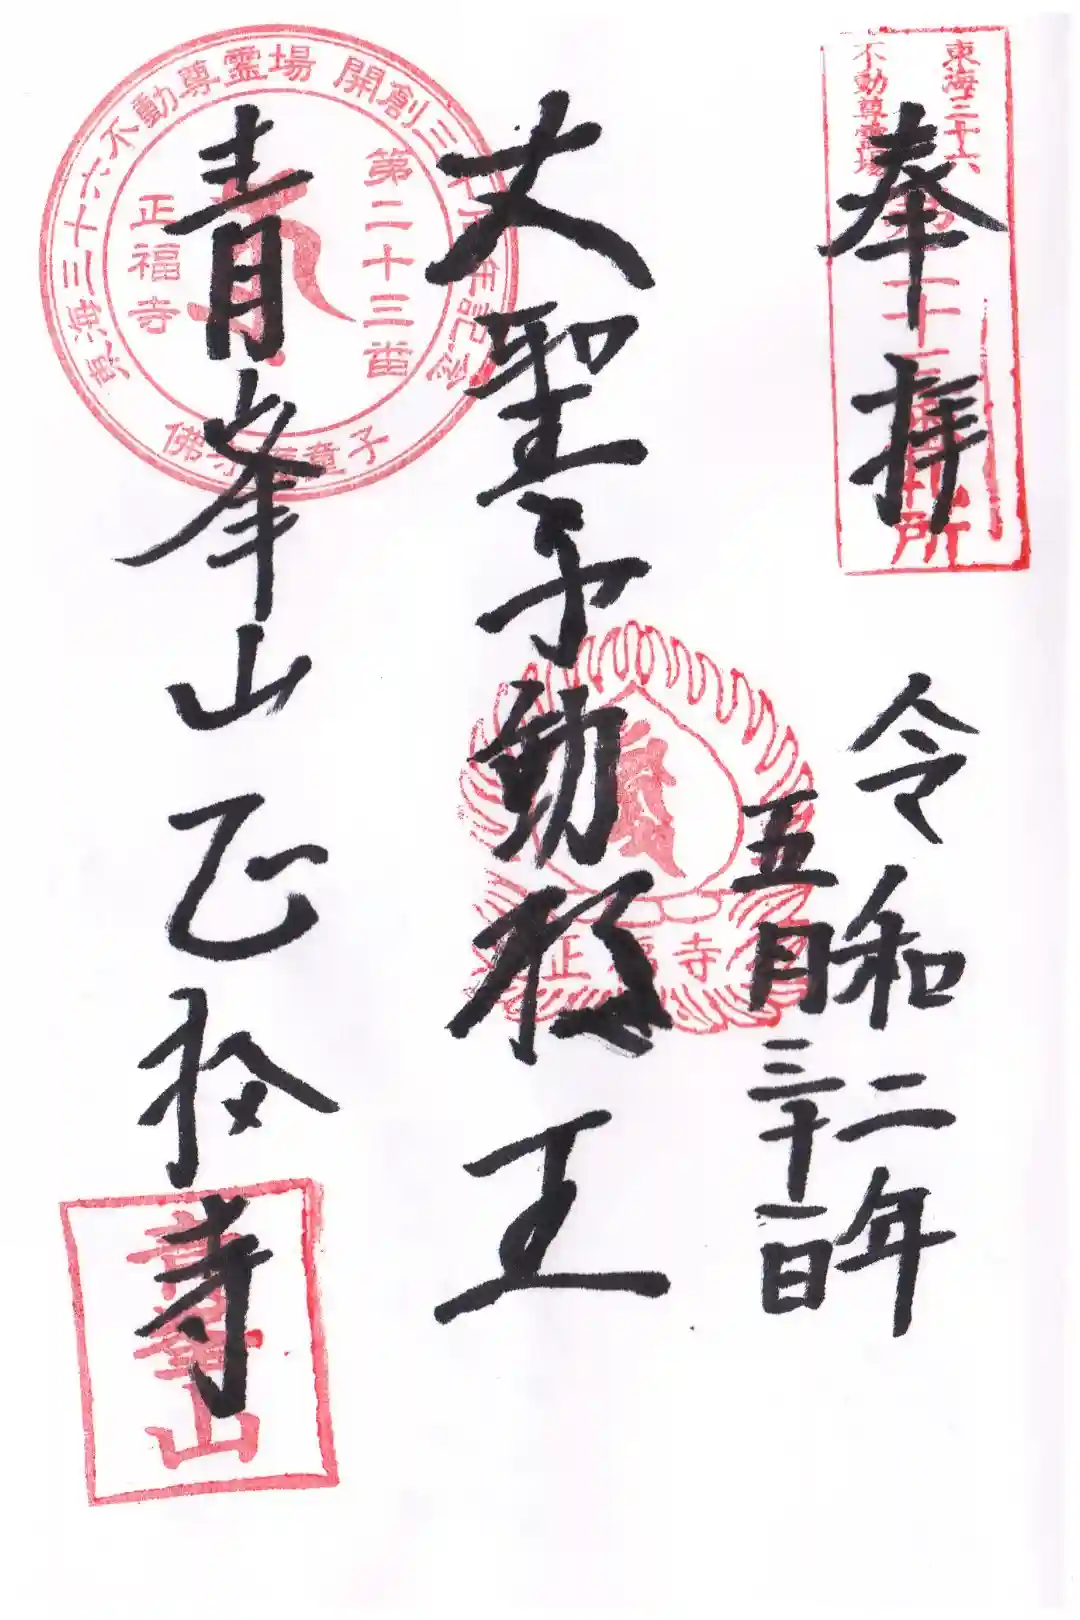 奉拝
東海三十六
不動尊霊場
第二十三番札所
令和二年
五月三十一日
大聖不動明王
正福寺
東海三十六不動尊霊場 開創三十五年記念
第二十三番
正福寺
童子
青峯山正福寺
青峯山